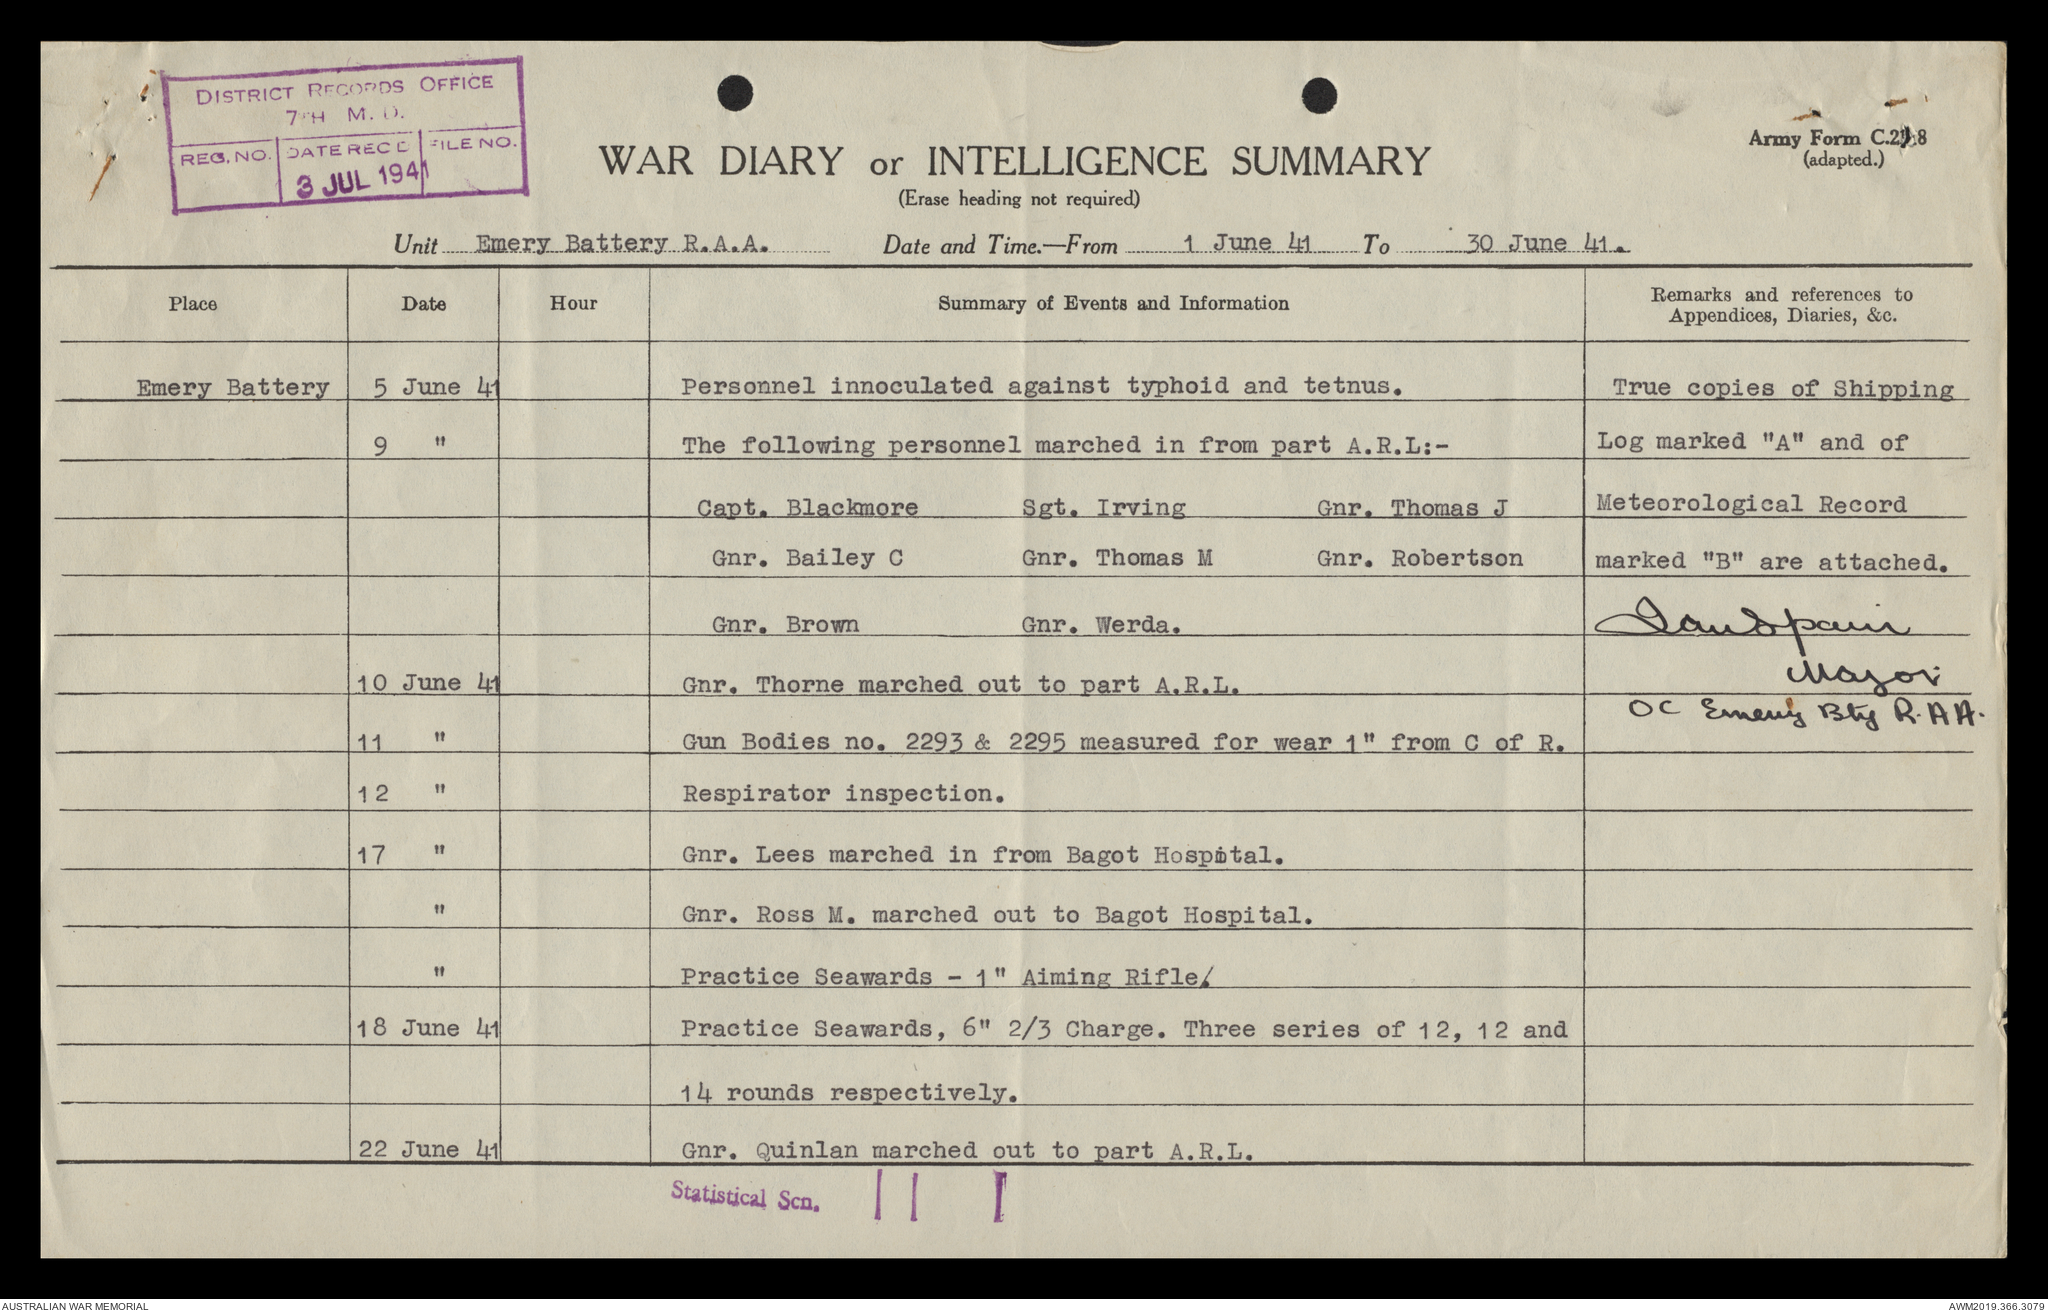 DISTRICT RECORDS OFFICE
7TH M. D.
REG. NO. DATE REC D FILE NO.
3 JUL 1941
Army Form C.2118
(adapted.)
WAR DIARY or INTELLIGENCE SUMMARY
(Erase heading not required)
Unit Emery Battery R.A.A. Date and Time.—From 1 June 41 To 30 June 41.
Place Date Hour Summary of Events and Information Remarks and references to Appendices, Diaries, &c.
Emery Battery 5 June 41 Personnel innoculated against typhoid and tetnus. True copies of Shipping
9 " The following personnel marched in from part A.R.L:- Log marked "A" and of
Capt. Blackmore Sgt. Irving Gnr. Thomas J Meteorological Record
Gnr. Bailey C Gnr. Thomas M Gnr. Robertson marked "B" are attached.
Gnr. Brown Gnr. Werda. IanSpain
Major
10 June 41 Gnr. Thorne marched out to part A.R.L.
OC Emery Bty R.A.A.
11 " Gun Bodies no. 2293 & 2295 measured for wear 1" from C of R.
12 " Respirator inspection.
17 " Gnr. Lees marched in from Bagot Hospital.
" Gnr. Ross M. marched out to Bagot Hospital.
" Practice Seawards - 1" Aiming Rifle.
18 June 41 Practice Seawards, 6" 2/3 Charge. Three series of 12, 12 and
14 rounds respectively.
22 June 41 Gnr. Quinlan marched out to part A.R.L.
Statistical Scn.
AUSTRALIAN WAR MEMORIAL AWM2019.366.3079